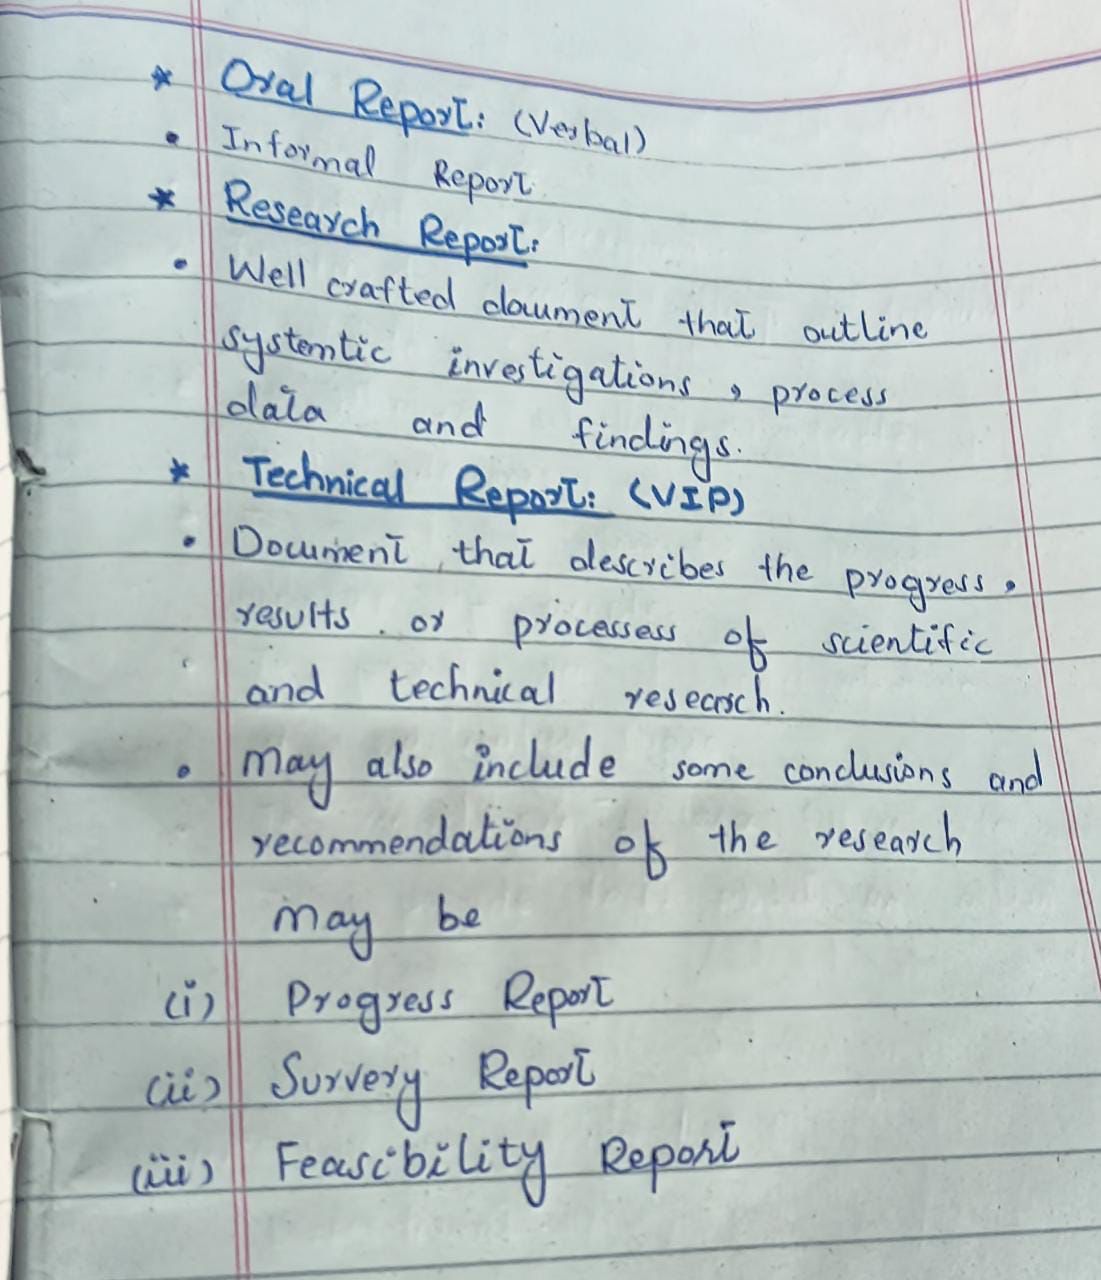 * Oral Report: (Verbal)
• Informal Report
* Research Report:
• Well crafted doument that outline
systemtic investigations, process
data and findings.
* Technical Report: (VIP)
• Document that describes the progress,
results or processess of scientific
and technical research.
• may also include some conclusions and
recommendations of the research
may be
(i) Progress Report
(ii) Survery Report
(iii) Feasibility Report